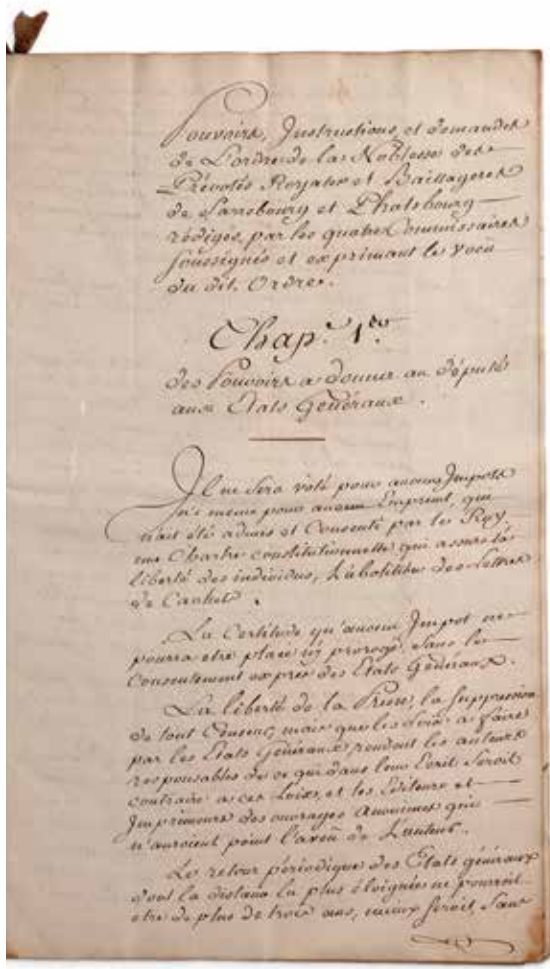 Pouvoirs, Instructions, et demandes
de L'ordre de la Noblesse des
Prévotés Royales et Bailliageres
de Sarrebourg et Phalsbourg
rédigés, par les quatre Commissaires
soussignés et exprimant le voeu
du dit. Ordre.
Chap.e 1er.
des Pouvoirs a donner au député
aux Etats Généraux.
Il ne sera voté pour aucun Impots
ni même pour aucun Emprunt, que
n'ait été admis et Consenti par le Roy,
une Chartre constitutionnelle qui assure la
liberté des individus, L'abolition des Lettres
de Cachets.
La Certitude qu'aucun Impot ne
pourra etre placé ni prorogé, sans le
Consentement exprès des Etats Généraux.
La liberté de la Presse, la suppression
de tout Censeur, mais que les Loix a faire
par les Etats Généraux, rendent les auteurs
responsables de ce qui dans leur Ecrit seroit
contraire a ces Loix, et les Editeurs et
Imprimeurs des ouvrages Anonimes qui
n'auroient point l'aveu de L'auteur.
Le retour périodique des Etats généraux
dont la distance la plus éloignée ne pourroit
etre de plus de trois ans, mieux seroit, sans